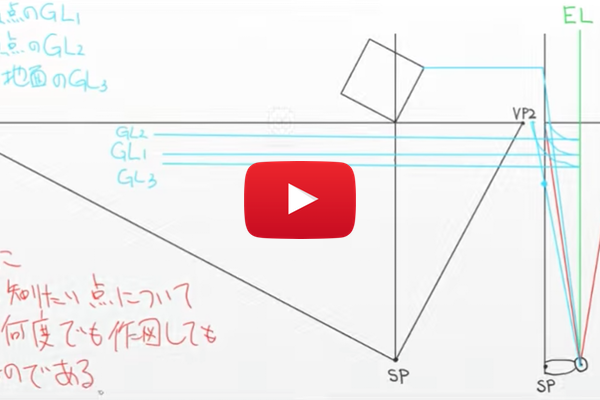 点のGL1
EL
点のGL2
地面のGL3
VP2
GL2
GL1
GL3
こ
知りたい点について
何度でも作図しても
のである。
SP
SP